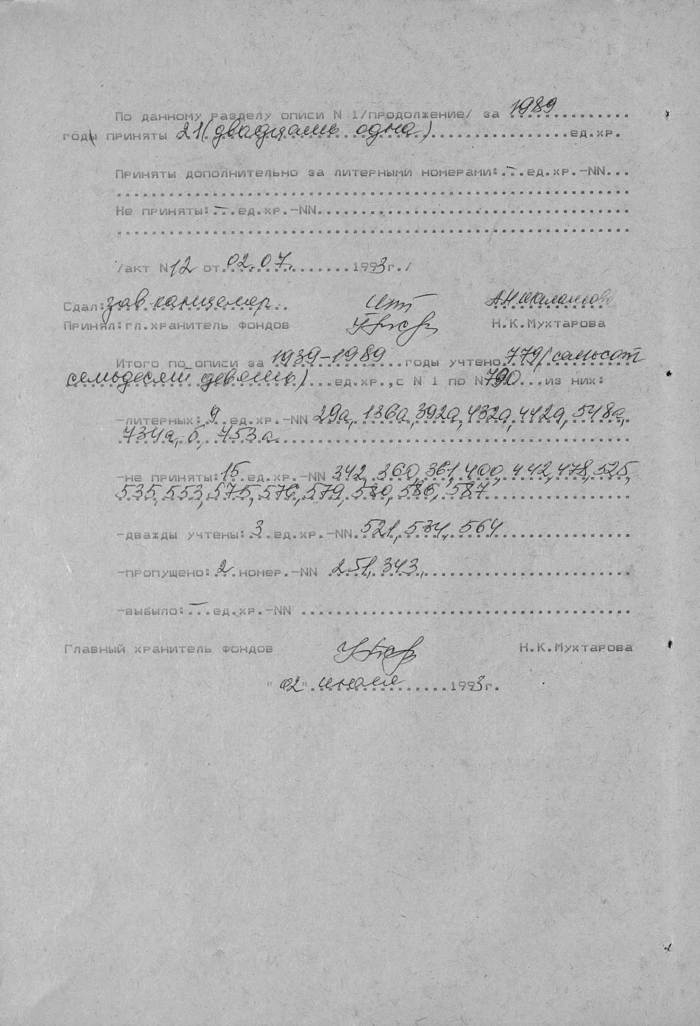 По данному разделу описи N 1/продолжение/ за 1989
годы приняты 21(двадцать одна) ед.хр.
Приняты дополнительно за литерными номерами:–...ед.хр.-NN...
Не приняты:–...ед.хр.-NN
/акт N 12 от 02.07. 1993г./
Сдал: зав канцеляр.
Принял:гл.хранитель фондов Н.К.Мухтарова
Итого по описи за 1939-1989 годы учтено 779(семьсот
семьдесят девять)...ед.хр.,с N 1 по N 790...из них:
-литерных: 9 ед.хр.-NN 29а, 136а, 392а, 432а, 442а, 548а,
734а, б, 753а
-не приняты: 15 ед.хр.-NN 342, 360, 361, 400, 442, 478, 525,
535, 553, 575, 576, 579, 580, 586, 587
-дважды учтены: 3 ед.хр.-NN 521, 534, 564
-пропущено: 2 номер.-NN 251, 343,
-выбыло:–...ед.хр.-NN
Главный хранитель фондов Н.К.Мухтарова
"02" июля 1993г.